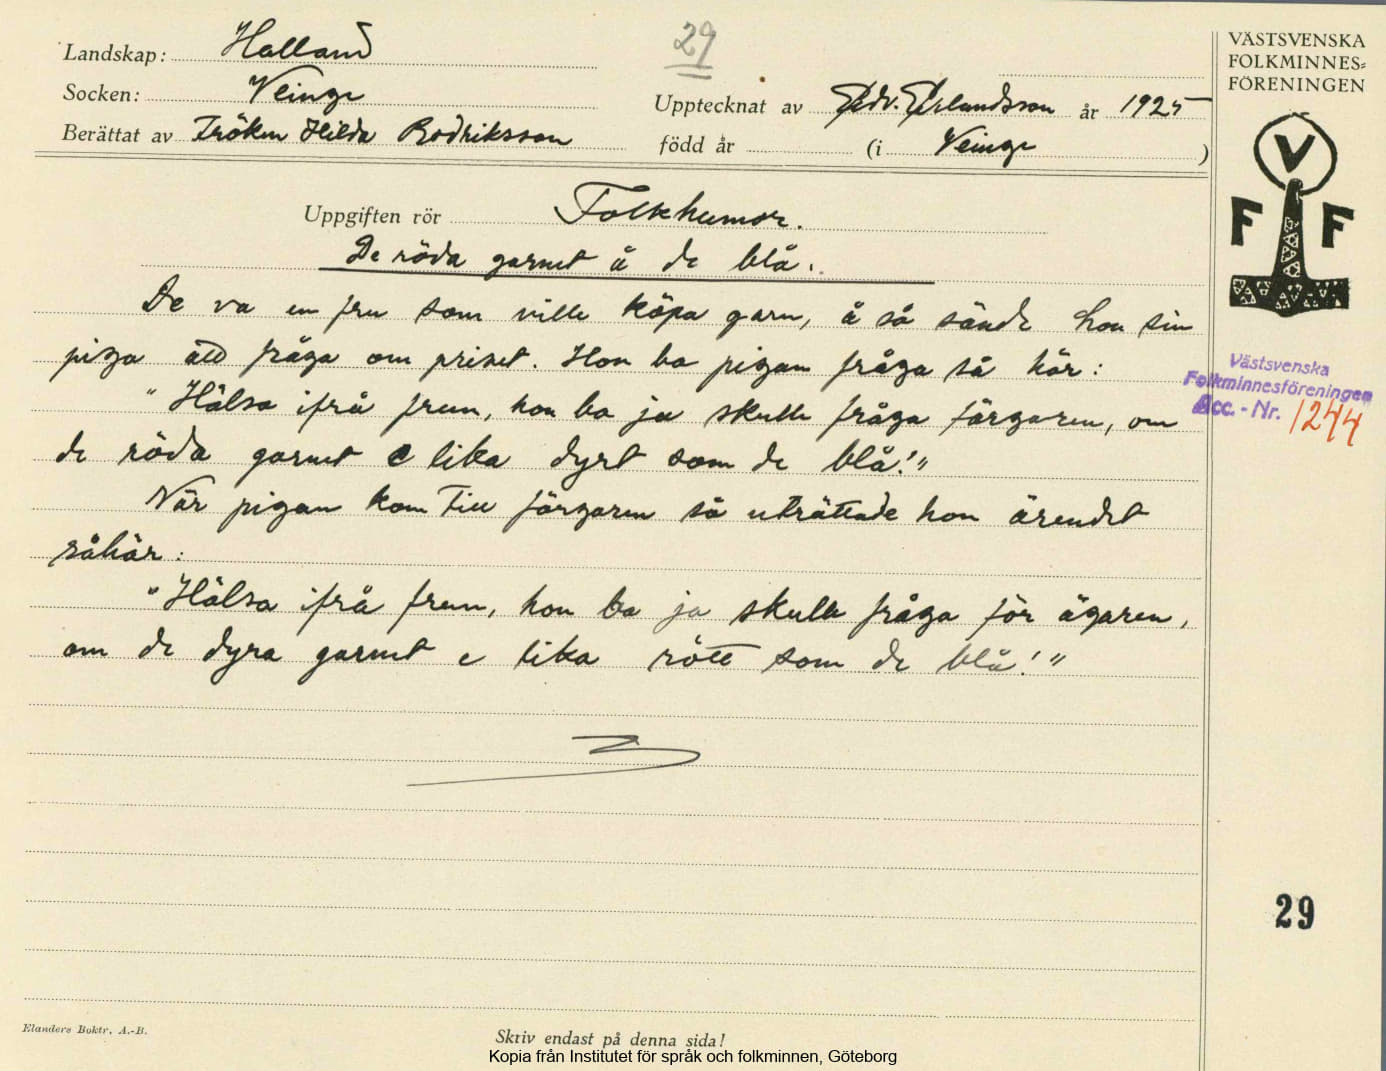 Landskap: Halland
29
Socken: Veinge
Upptecknat av Edv. Erlandsson år 1925
Berättat av Fröken Hilda Bodriksson
född år (i Veinge )
VÄSTSVENSKA
FOLKMINNES=
FÖRENINGEN
V
F F
Uppgiften rör Folkhumor.
De röda garnet å de blå.
De va en fru som ville köpa garn, å så sände hon sin
piga att fråga om priset. Hon ba pigan fråga så här:
"Hälsa ifrå frun, hon ba ja skulle fråga färgaren, om
de röda garnet e lika dyrt som de blå!"
När pigan kom till färgaren så uträttade hon ärendet
såhär:
"Hälsa ifrå frun, hon ba ja skulle fråga för ägaren,
om de dyra garnet e lika rött som de blå!"
Västsvenska
Folkminnesföreningen
Acc. - Nr. 1244
29
Elanders Boktr. A.-B.
Skriv endast på denna sida!
Kopia från Institutet för språk och folkminnen, Göteborg